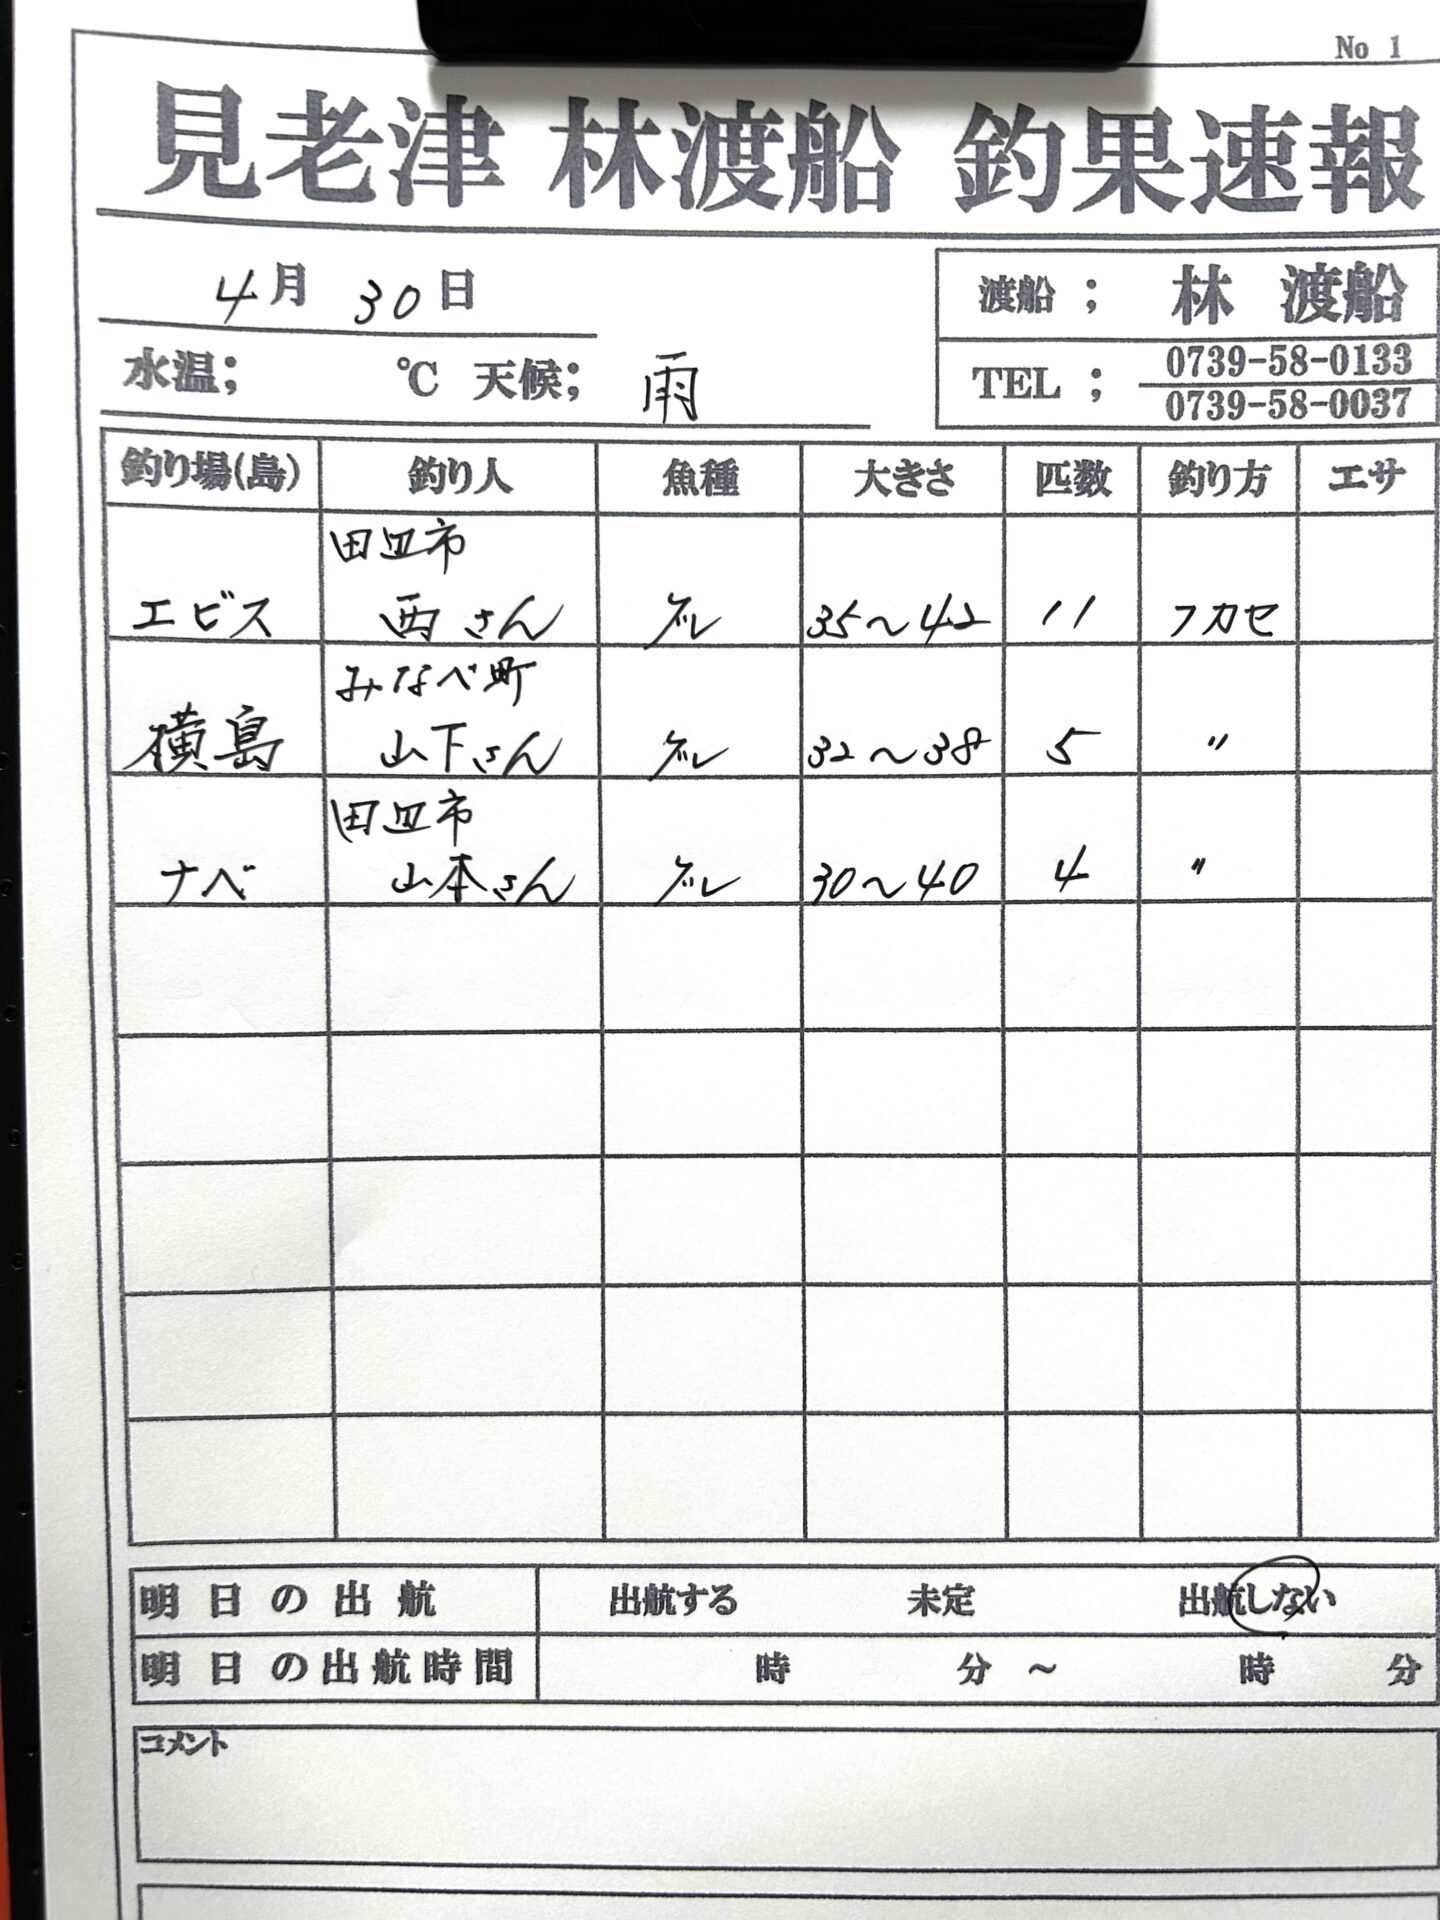 No 1
見老津 林渡船 釣果速報
4月 30日
渡船 ; 林 渡船
水温; ℃ 天候; 雨
TEL ; 0739-58-0133
0739-58-0037
釣り場(島) 釣り人 魚種 大きさ 匹数 釣り方 エサ
田辺市
エビス 西さん グレ 35〜42 11 フカセ
みなべ町
横島 山下さん グレ 32〜38 5 〃
田辺市
ナベ 山本さん グレ 30〜40 4 〃
明日の出航 出航する 未定 出航しない
明日の出航時間 時 分 ~ 時 分
コメント